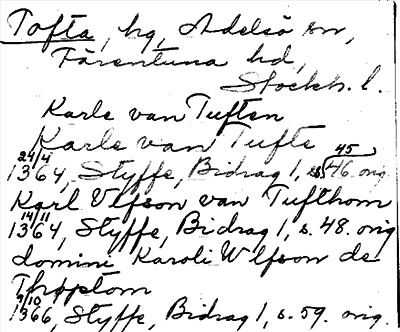 Tofta, hg, Adelsö sn,
Färentuna hd,
Stockh. l.
Karle van Tuften
Karle van Tufte
24/4 45
1364, Styffe, Bidrag 1, s. 46 orig.
Karl Ulfson van Tufthom
14/11
1364, Styffe, Bidrag 1, s. 48. orig
domini Karoli Wlfson de
Thoptom
9/10
1366, Styffe, Bidrag 1, s. 59. orig.